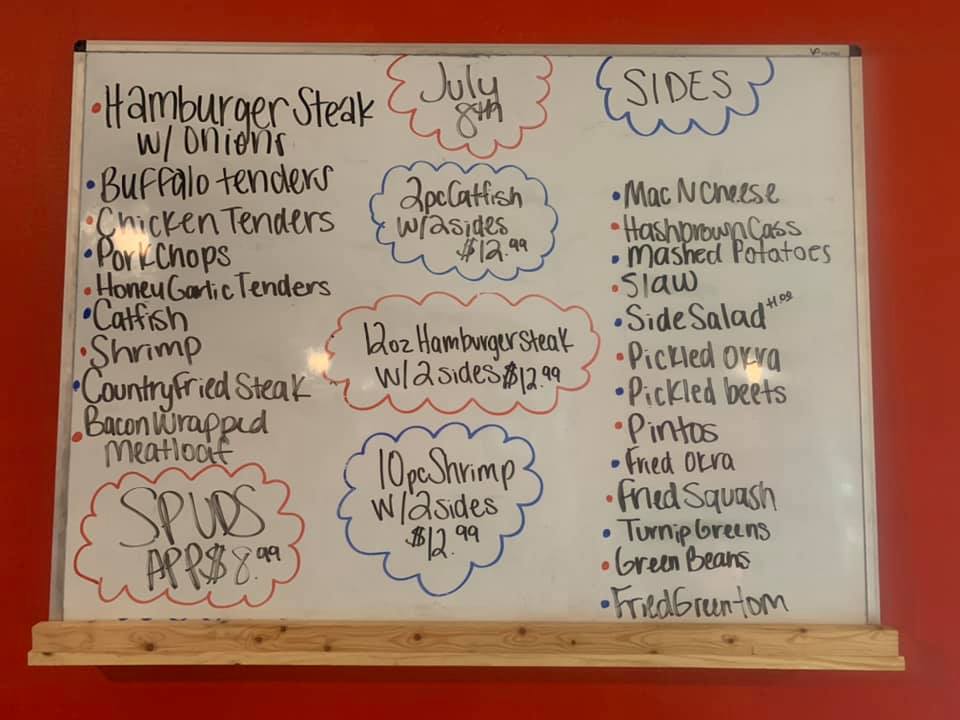 Hamburger Steak
w/ onions
Buffalo tenders
Chicken Tenders
Pork Chops
Honey Garlic Tenders
Catfish
Shrimp
Country Fried Steak
Bacon Wrapped
Meatloaf
SPUDS
APP $8.99
July
8th
2pc Catfish
w/2 sides
$12.99
12oz Hamburger Steak
w/2 sides $12.99
10pc Shrimp
w/2 sides
$12.99
SIDES
Mac N Cheese
Hashbrown Cass
Mashed Potatoes
Slaw
Side Salad +1.00
Pickled Okra
Pickled beets
Pintos
Fried Okra
Fried Squash
Turnip Greens
Green Beans
Fried Green tom